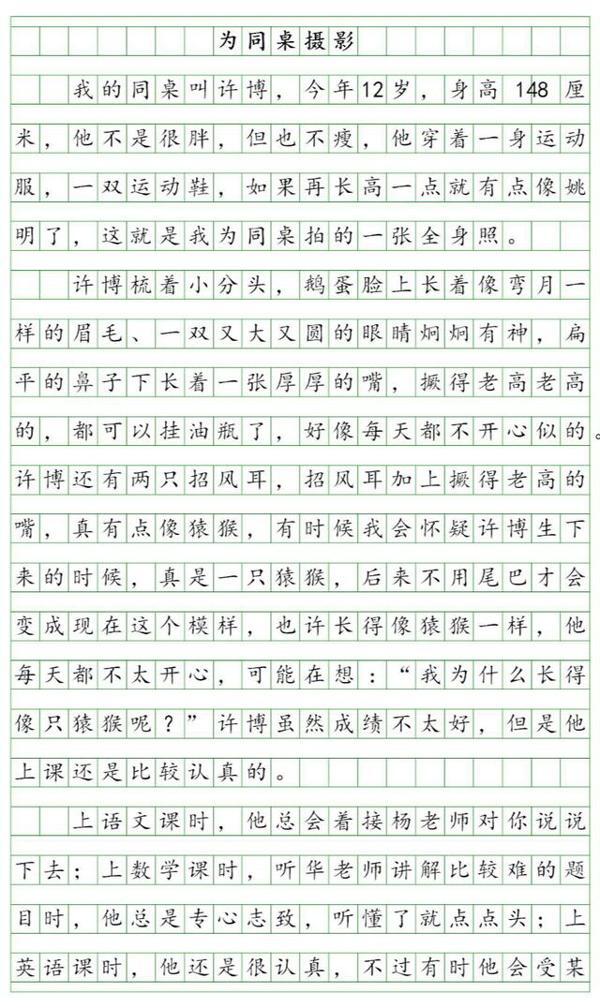 为同桌摄影
我的同桌叫许博，今年12岁，身高 148 厘
米，他不是很胖，但也不瘦，他穿着一身运动
服，一双运动鞋，如果再长高一点就有点像姚
明了，这就是我为同桌拍的一张全身照。
许博梳着小分头，鹅蛋脸上长着像弯月一
样的眉毛、一双又大又圆的眼睛炯炯有神，扁
平的鼻子下长着一张厚厚的嘴，撅得老高老高
的，都可以挂油瓶了，好像每天都不开心似的。
许博还有两只招风耳，招风耳加上撅得老高的
嘴，真有点像猿猴，有时候我会怀疑许博生下
来的时候，真是一只猿猴，后来不用尾巴才会
变成现在这个模样，也许长得像猿猴一样，他
每天都不太开心，可能在想：“我为什么长得
像只猿猴呢？”许博虽然成绩不太好，但是他
上课还是比较认真的。
上语文课时，他总会着接杨老师对你说说
下去；上数学课时，听华老师讲解比较难的题
目时，他总是专心志致，听懂了就点点头；上
英语课时，他还是很认真，不过有时他会受某